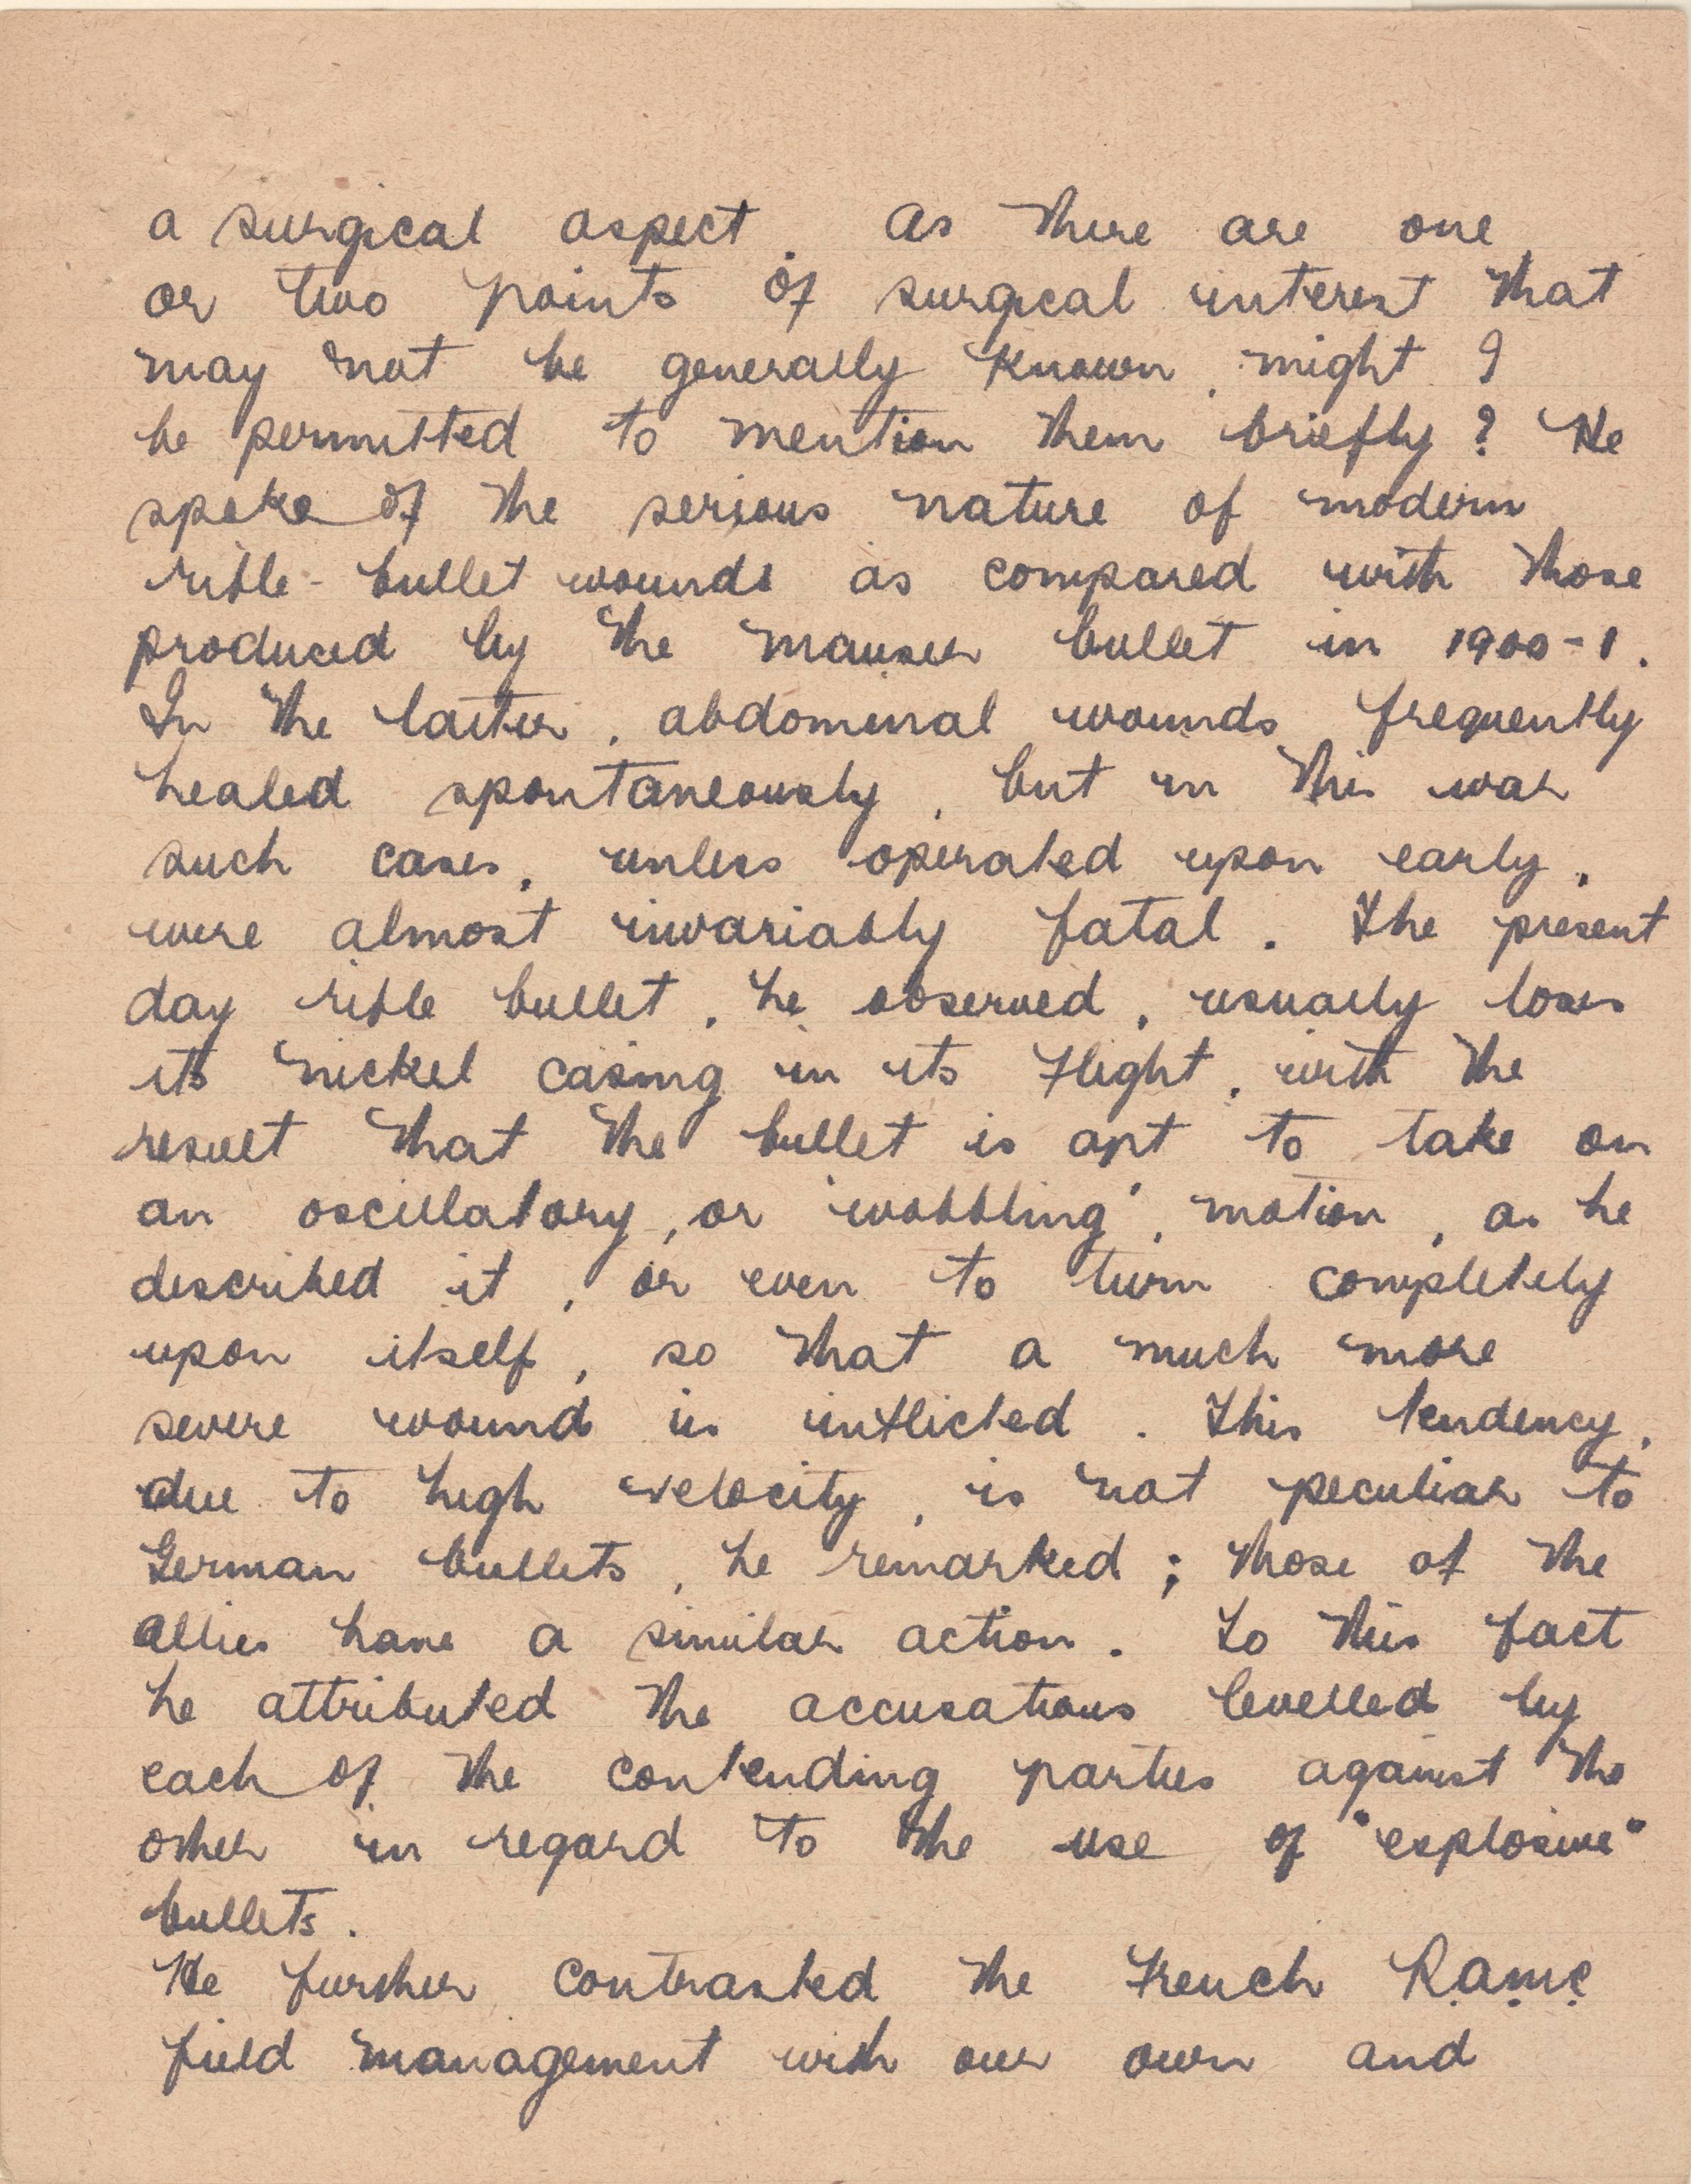 a surgical aspect. As there are one
or two points of surgical interest that
may not be generally known, might I
be permitted to mention them briefly? He
spoke of the serious nature of modern
rifle-bullet wounds as compared with those
produced by the mauser bullet in 1900-1.
In the latter, abdominal wounds frequently
healed spontaneously, but in this war
such cases, unless operated upon early,
were almost invariably fatal. The present
day rifle bullet, he observed, usually loses
its nickel casing in its flight, with the
result that the bullet is apt to take on
an oscillatory, or 'wobbling', motion, as he
described it, or even to turn completely
upon itself, so that a much more
severe wound is inflicted. This tendency,
due to high velocity, is not peculiar to
German bullets, he remarked; those of the
Allies have a similar action. To this fact
he attributed the accusations levelled by
each of the contending parties against the
other in regard to the use of "explosive"
bullets.
He further contrasted the French R.A.M.C
field management with our own and